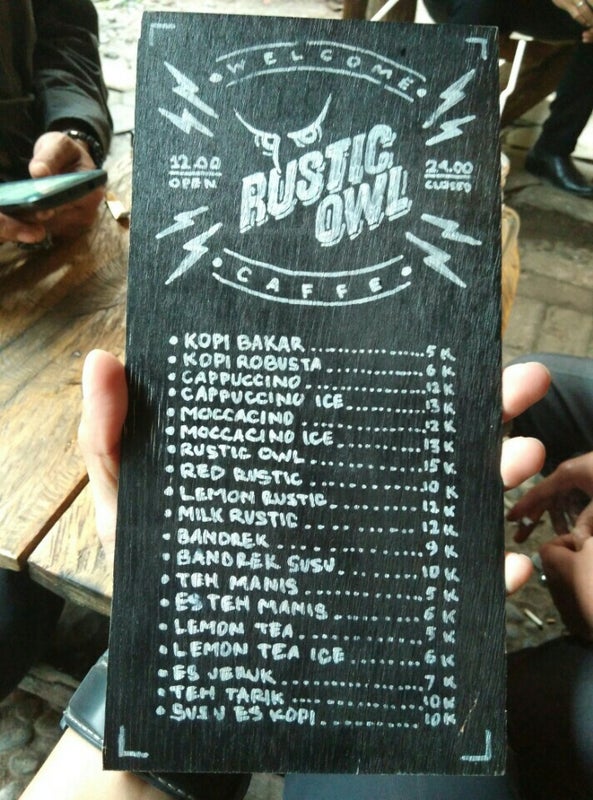 WELCOME
12.00
OPEN
24.00
CLOSED
RUSTIC
OWL
CAFFE
• KOPI BAKAR ..................... 5 K
• KOPI ROBUSTA ................ 6 K
• CAPPUCCINO ................. 12 K
• CAPPUCCINO ICE ............ 13 K
• MOCCACINO .................. 12 K
• MOCCACINO ICE ............. 13 K
• RUSTIC OWL .................. 15 K
• RED RUSTIC .................. 10 K
• LEMON RUSTIC .............. 12 K
• MILK RUSTIC ................. 12 K
• BANDREK ...................... 9 K
• BANDREK SUSU .............. 10 K
• TEH MANIS .................... 5 K
• ES TEH MANIS ................ 6 K
• LEMON TEA .................... 5 K
• LEMON TEA ICE .............. 6 K
• ES JERUK ...................... 7 K
• TEH TARIK .................... 10 K
• SUSU ES KOPI ................ 10 K